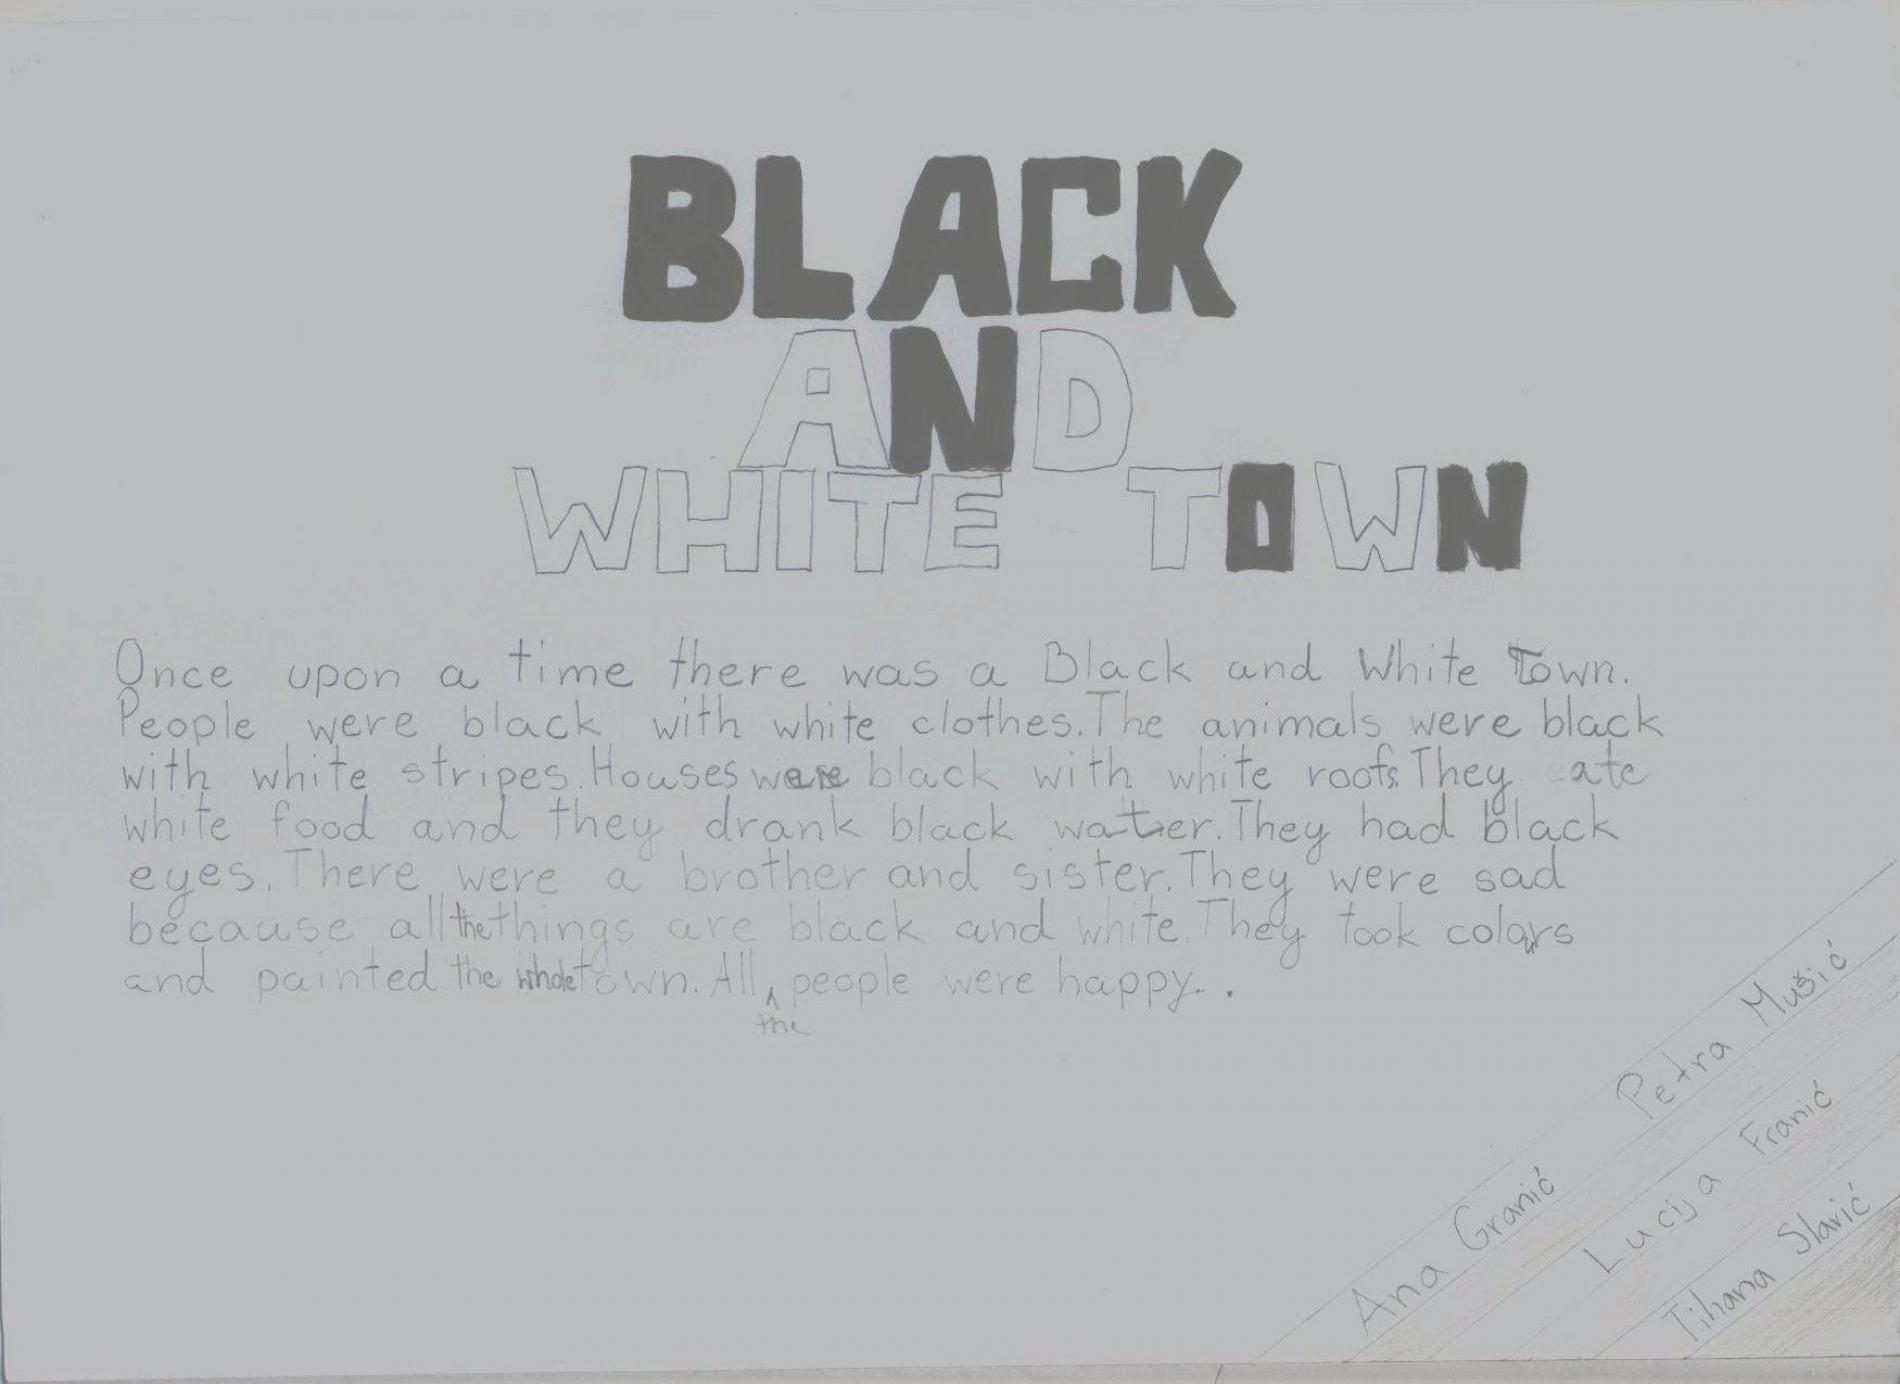 BLACK
AND
WHITE TOWN
Once upon a time there was a Black and White Town.
People were black with white clothes. The animals were black
with white stripes. Houses were black with white roofs. They ate
white food and they drank black water. They had black
eyes. There were a brother and sister. They were sad
because all the things are black and white. They took colors
and painted the whole town. All the people were happy..
Ana Granić Petra Mušić
Lucija Franić
Tihana Slavić